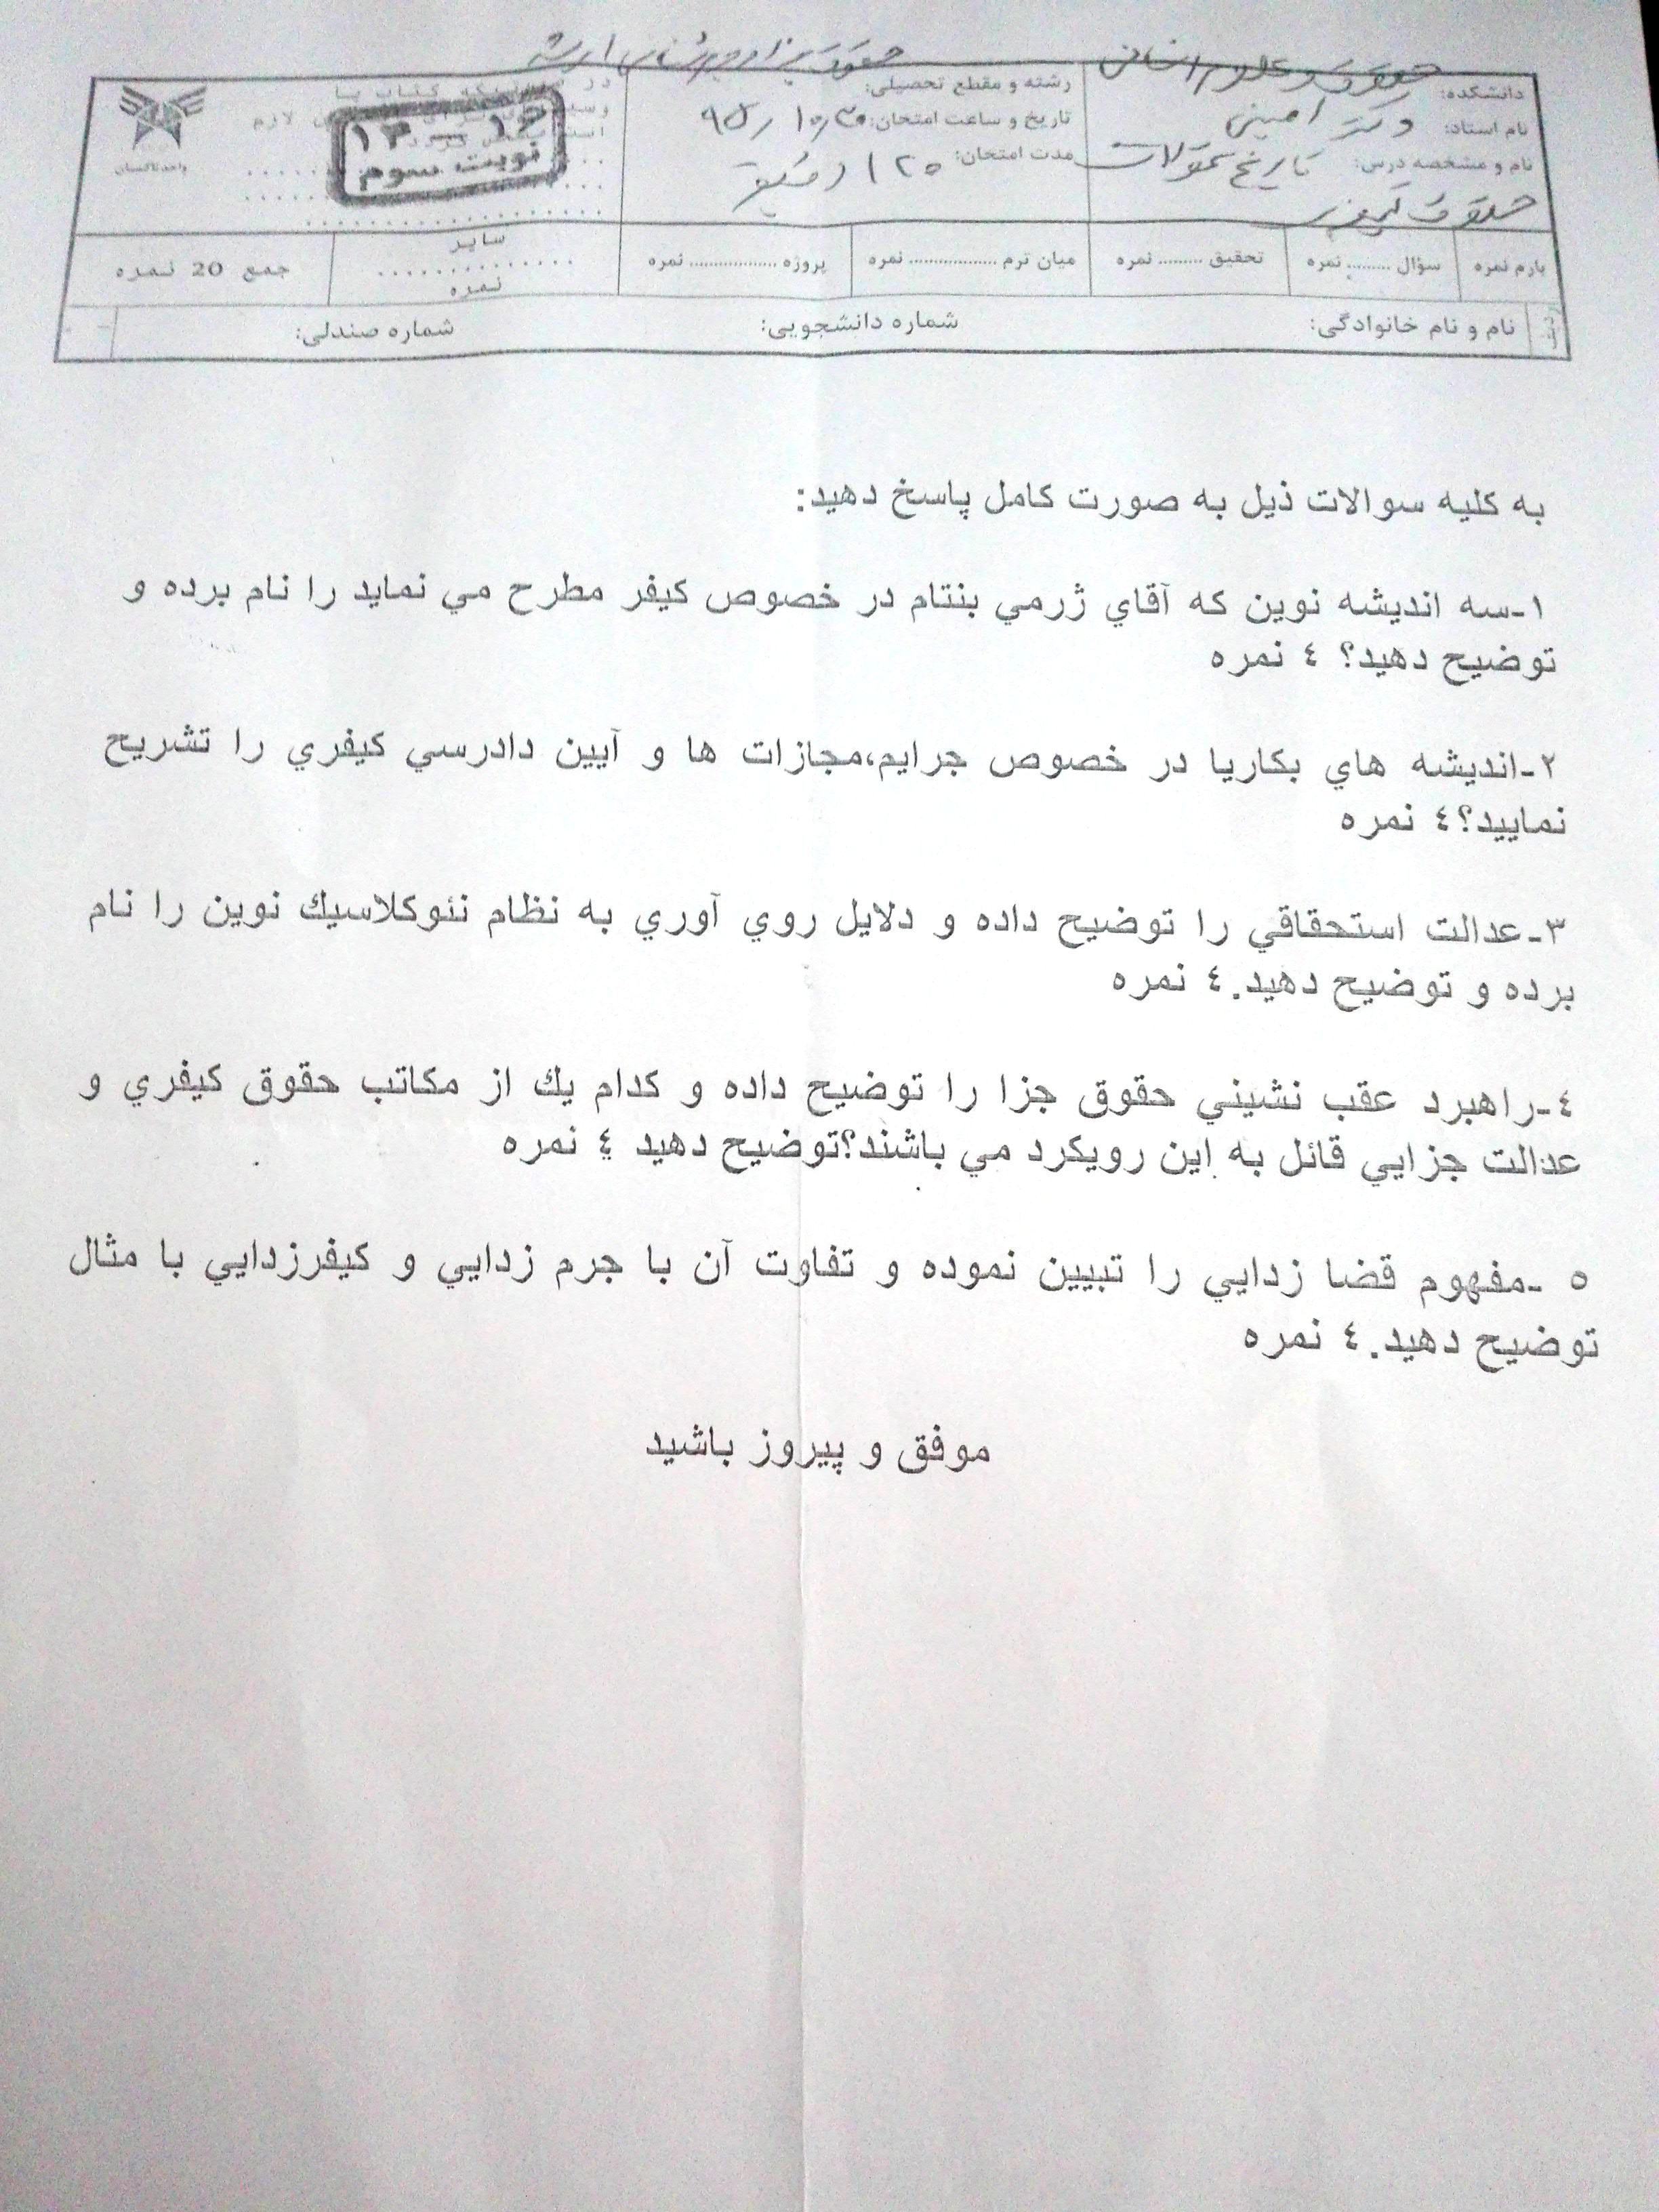 دانشکده: حقوق و علوم انسانی
رشته و مقطع تحصیلی: حقوق جزا و جرم شناسی ارشد
نام استاد: دکتر امینی
تاریخ و ساعت امتحان:
نام و مشخصه درس: تاریخ تحولات
حقوق کیفری
مدت امتحان: ۱۲۰ دقیقه
۱۶ – ۱۴
نوبت سوم
واحد تاکستان
بارم نمره
سؤال ......... نمره
تحقیق ......... نمره
میان ترم .................. نمره
پروژه .................. نمره
سایر
نمره
جمع 20 نمره
نام و نام خانوادگی:
شماره دانشجویی:
شماره صندلی:
به کلیه سوالات ذیل به صورت کامل پاسخ دهید:
۱-سه اندیشه نوین که آقاي ژرمي بنتام در خصوص کیفر مطرح مي نماید را نام برده و
توضیح دهید؟ ٤ نمره
۲-اندیشه هاي بکاریا در خصوص جرایم،مجازات ها و آیین دادرسي کیفري را تشریح
نمایید؟٤ نمره
۳-عدالت استحقاقي را توضیح داده و دلایل روي آوري به نظام نئوکلاسیك نوین را نام
برده و توضیح دهید.٤ نمره
٤-راهبرد عقب نشیني حقوق جزا را توضیح داده و کدام یك از مکاتب حقوق کیفري و
عدالت جزایي قائل به این رویکرد مي باشند؟توضیح دهید ٤ نمره
٥ -مفهوم قضا زدایي را تبیین نموده و تفاوت آن با جرم زدایي و کیفرزدایي با مثال
توضیح دهید.٤ نمره
موفق و پیروز باشید